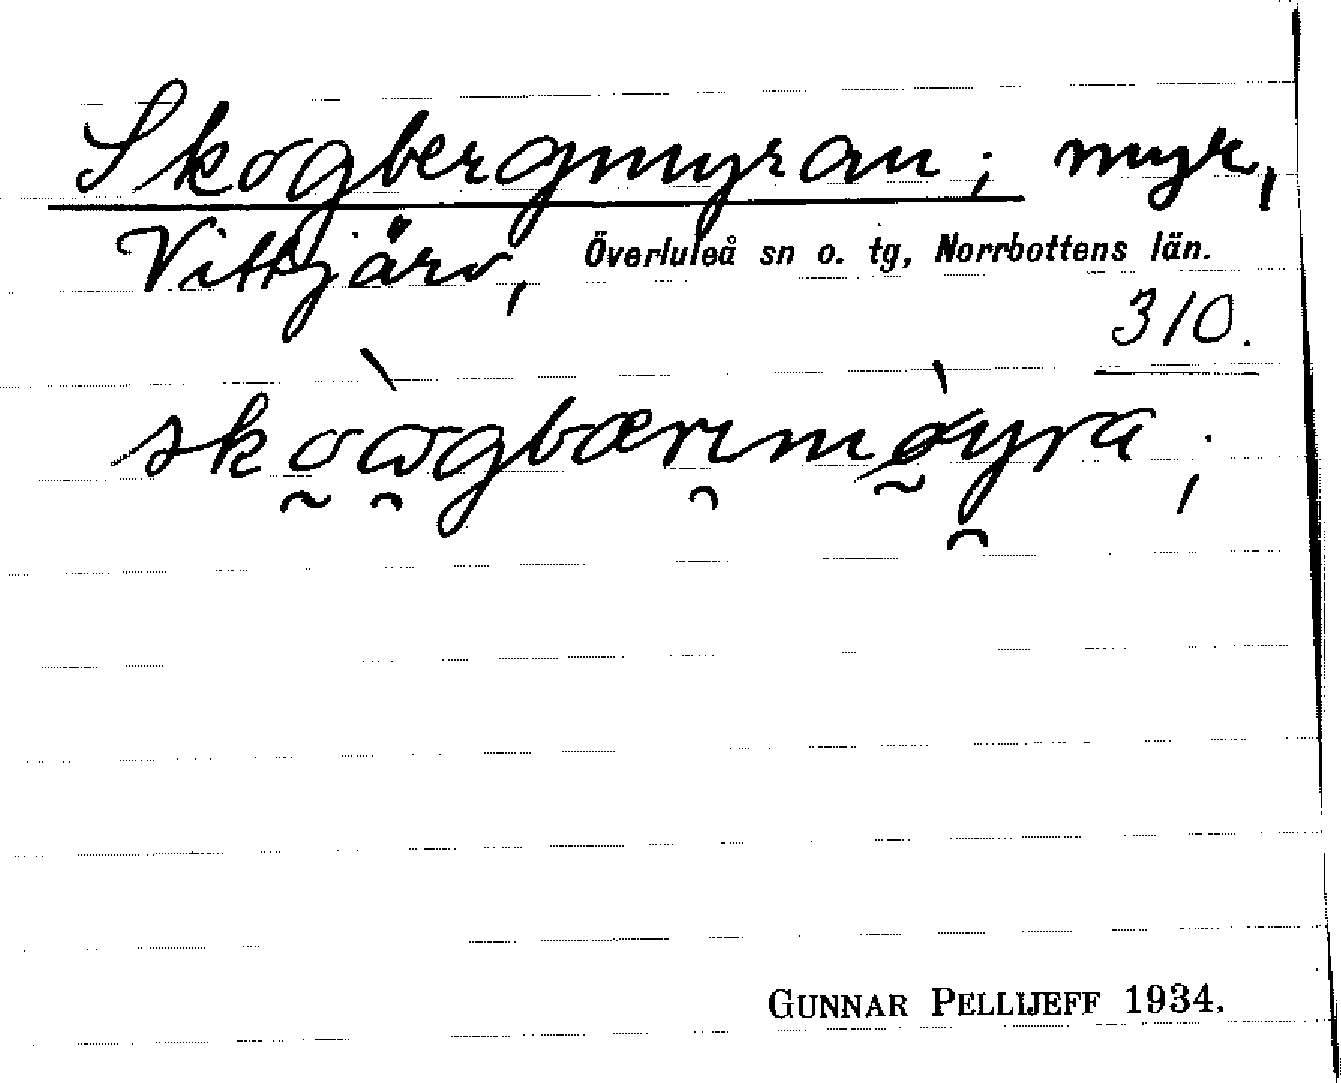 Skogbergmyran; myr,
Vittjärv, Överluleå sn o. tg, Norrbottens län.
310.
skoògbærımøỳra;
GUNNAR PELLIJEFF 1934.